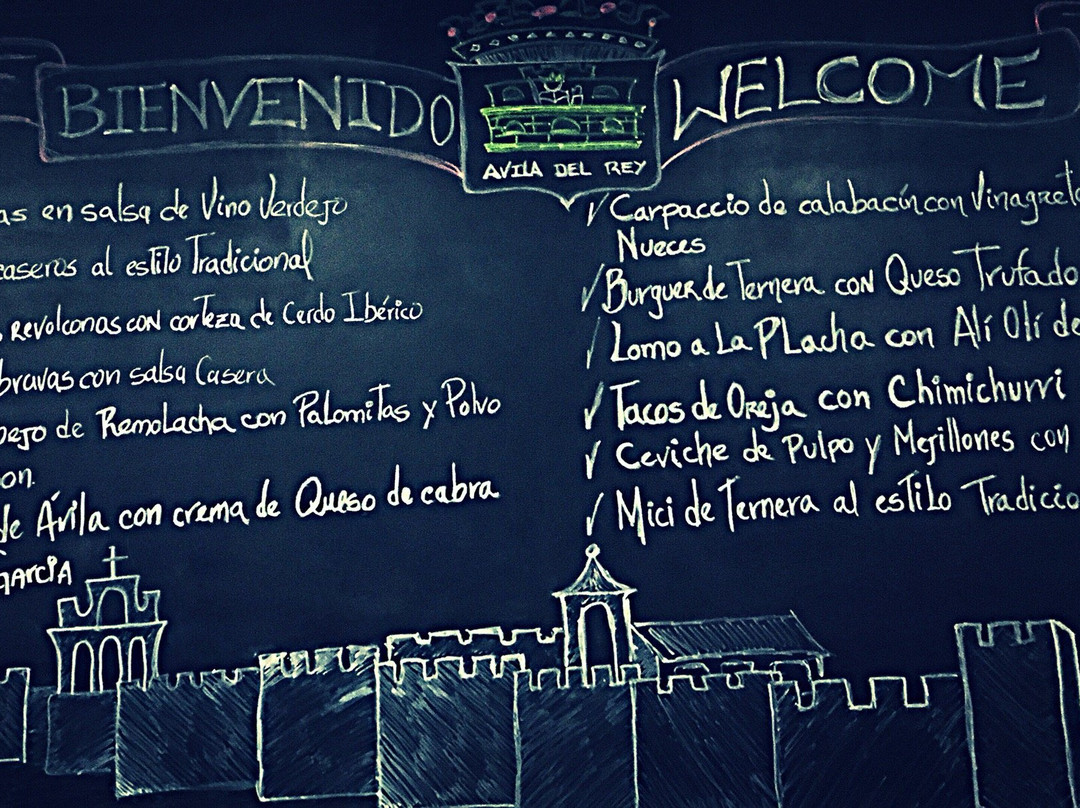 BIENVENIDO
AVILA DEL REY
WELCOME
as en salsa de Vino Verdejo
caseros al estilo Tradicional
Revolconas con corteza de Cerdo Ibérico
bravas con salsa Casera
pejo de Remolacha con Palomitas y Polvo
on.
de Ávila con crema de Queso de cabra
GARCIA
Carpaccio de calabacín con Vinagreta
Nueces
Burguer de Ternera con Queso Trufado
Lomo a La PLacha con Alí Olí de
Tacos de Oreja con Chimichurri
Ceviche de Pulpo y Mejillones con
Mici de Ternera al estilo Tradicio